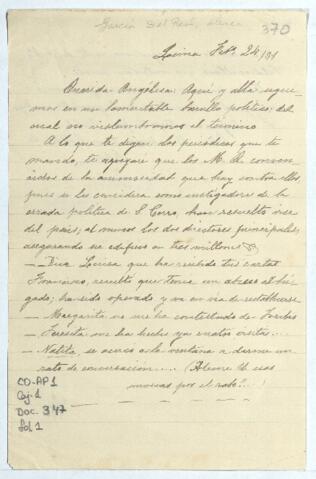 García del Río,
370
Lima Feb. 24/31
Querida Angélica: Aquí y allá segui-
mos en un lamentable barullo político; del
cual no vislumbramos el término
A lo que te digan los periódicos que te
mando, te agregaré que los M. A. conven-
cidos de la animosidad que hay contra ellos,
pues se les considera como instigadores de la
errada política de S. Cerro, han resuelto irse
del país; al menos los dos directores principales,
asegurando su edificio en tres millones
— Dice Louisa que ha recibido tus cartas
Francisco, resultó que tenía un absceso al hí-
gado; ha sido operado y va en vía de restablecerse
— Margarita no me ha contestado de
— Teresita me ha hecho ya cuatro visitas.
— Natita se acercó a la ventana a darme un
rato de conversación....
moscas por el rabo?...!
CO-AP1
Caj. 1
Doc. 347
Fol. 1